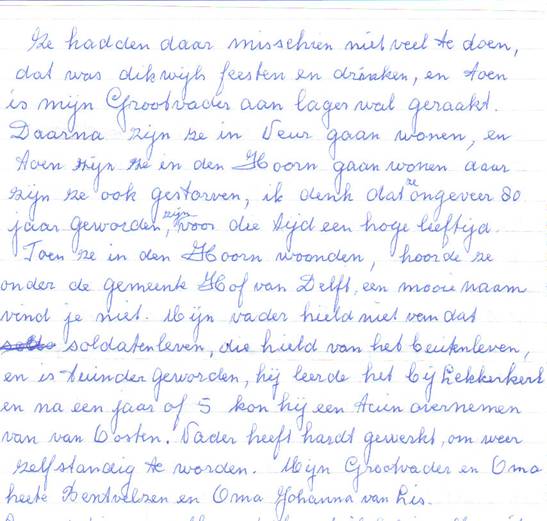 Ze hadden daar misschien niet veel te doen,
dat was dikwijls feesten en drinken, en toen
is mijn Grootvader aan lager wal geraakt.
Daarna zijn ze in Veur gaan wonen, en
toen zijn ze in den Hoorn gaan wonen daar
zijn ze ook gestorven, ik denk dat ze ongeveer 80
jaar geworden, zijn voor die tijd een hoge leeftijd.
Toen ze in den Hoorn woonden, hoorde ze
onder de gemeente Hof van Delft, een mooie naam
vind je niet. Mijn vader hield niet van dat
soldatenleven, die hield van het buitenleven,
en is tuinder geworden, hij leerde het bij Lekkerkerk
en na een jaar of 5 kon hij een tuin overnemen
van van Oosten. Vader heeft hardt gewerkt, om weer
zelfstandig te worden. Mijn Grootvader en Oma
heete Bentvelzen en Oma Johanna van Lis.